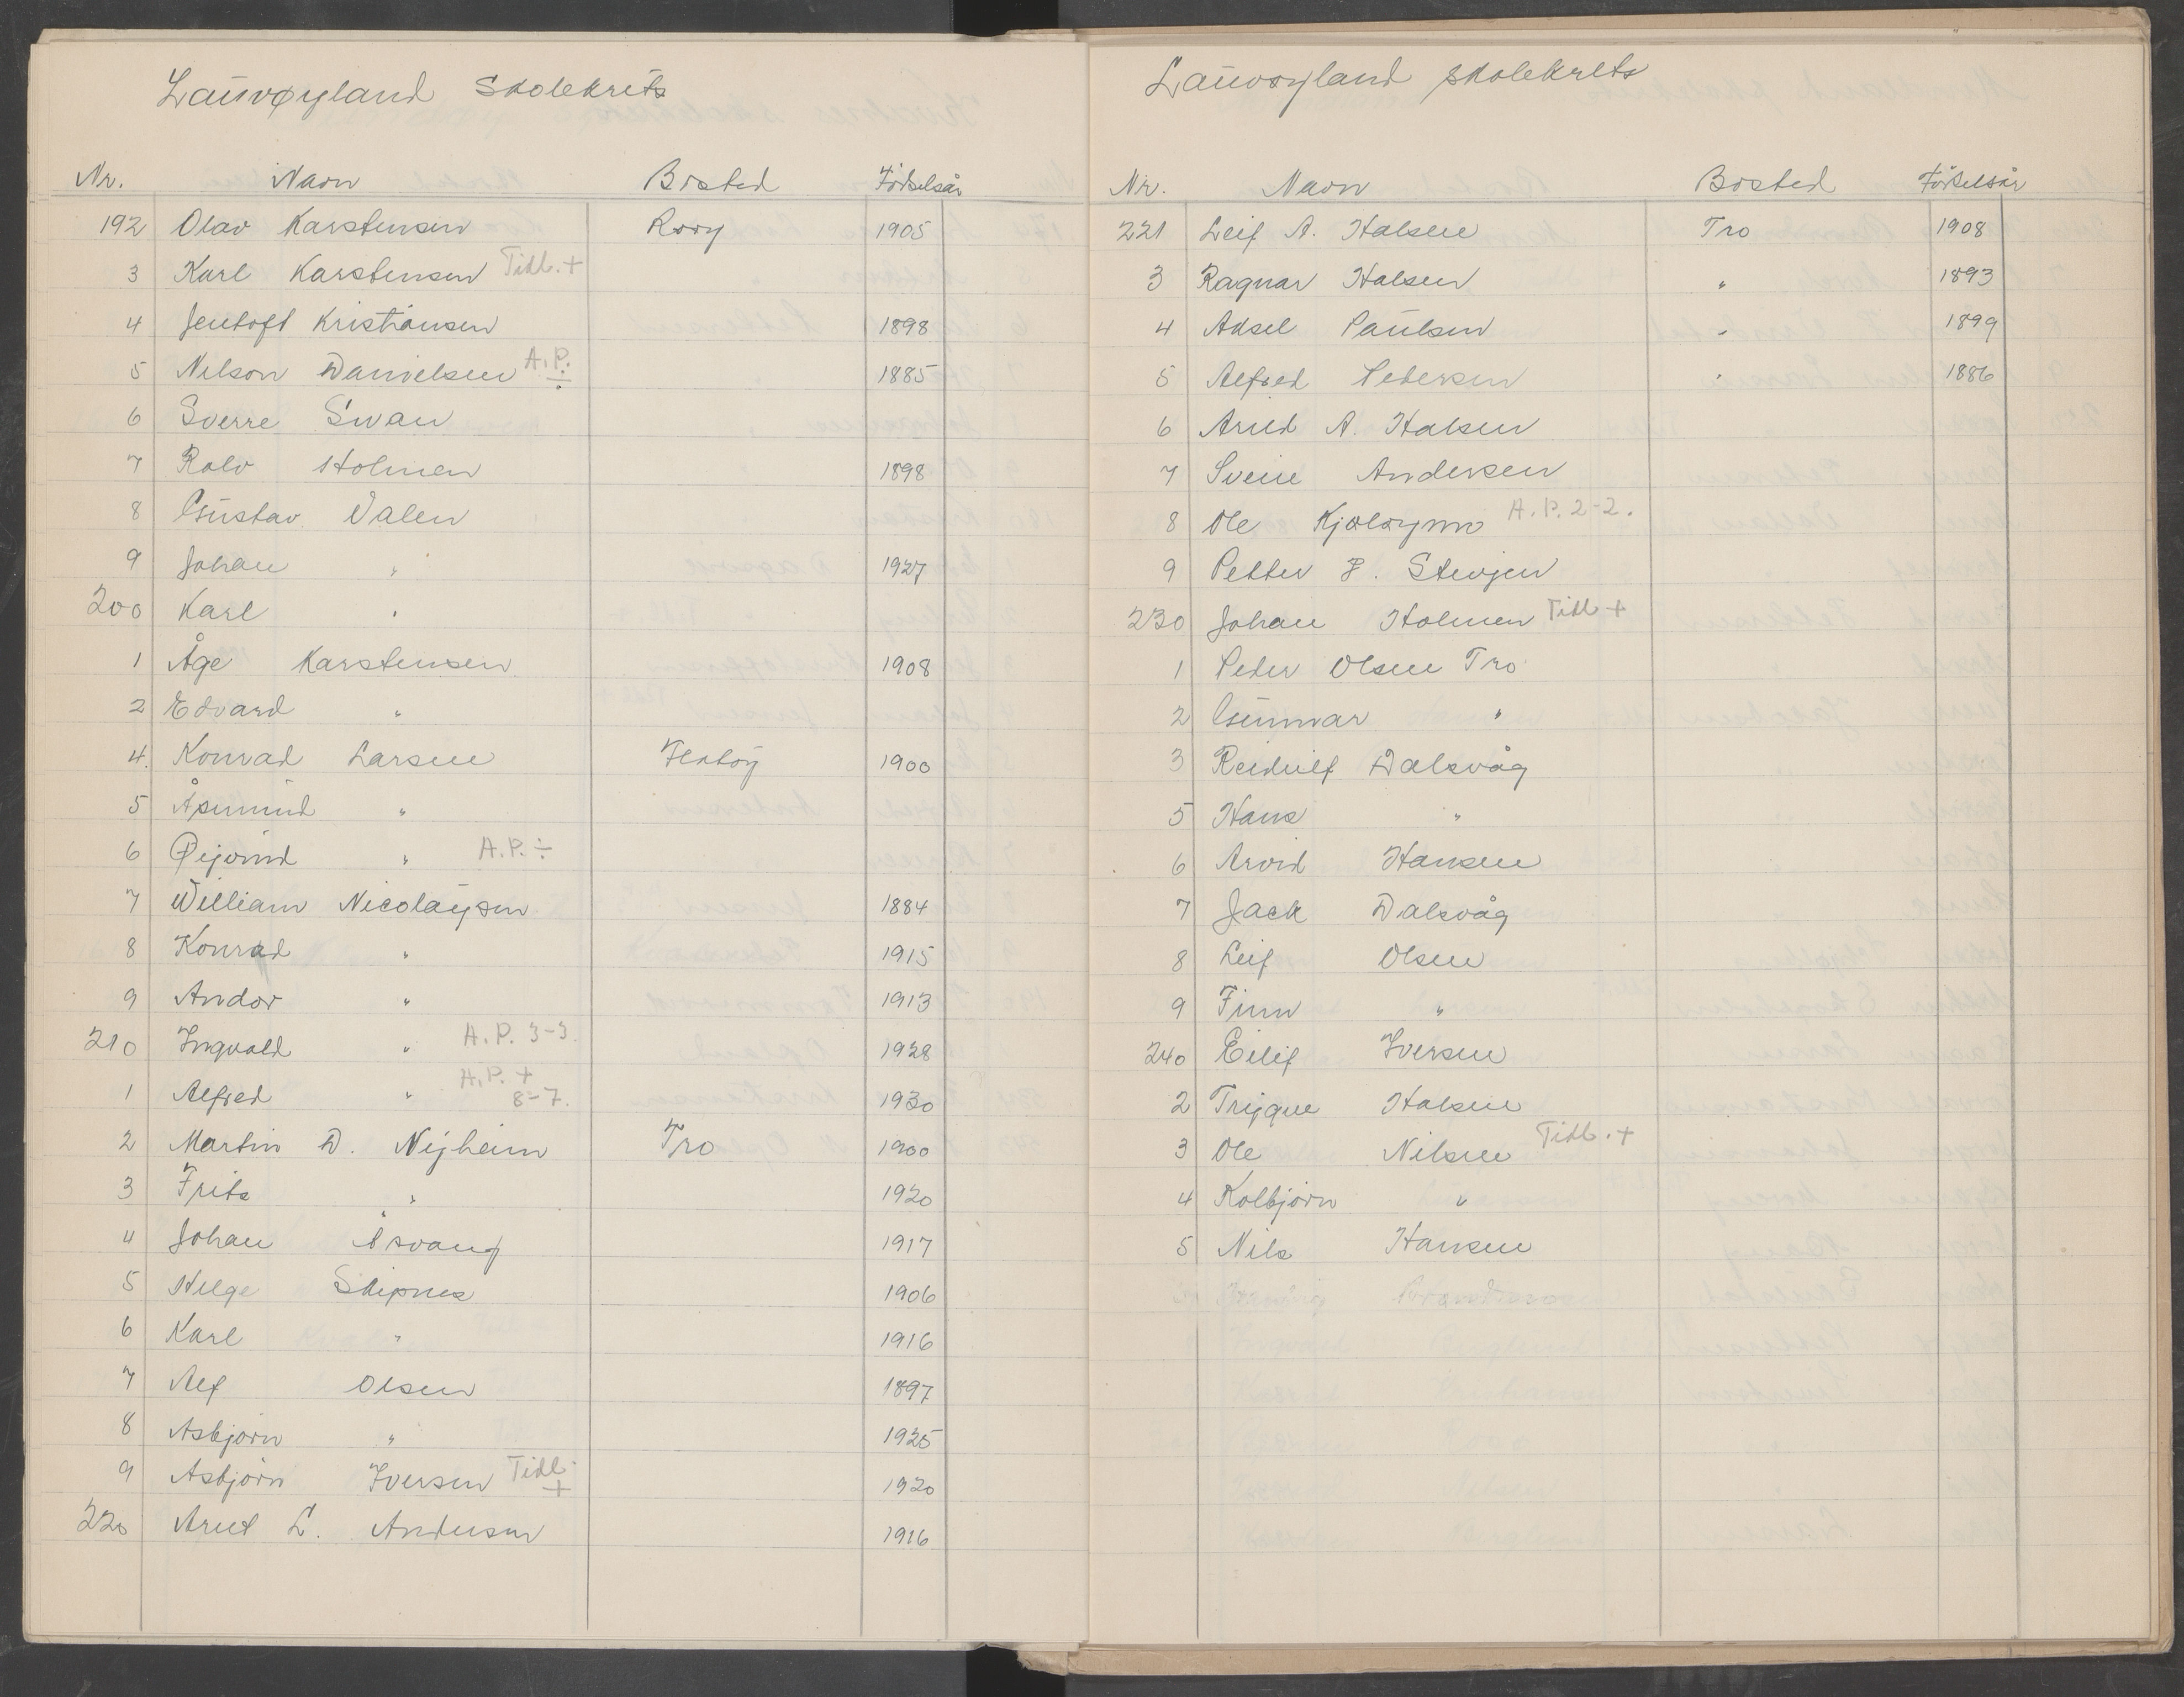 Lauvøyland Skolekrets
Nr. Navn Bosted Födselsår
192 Olav Karstensen Roøy 1905
3 Karl Karstensen Tidl. +
4 Jentoft Kristiansen 1898
5 Nelson Danielsen A.P. ÷ 1885
6 Sverre Swan
7 Rolv Holmen 1898
8 Gustav Valen
9 Johan " 1927
200 Karl "
1 Åge Karstensen 1908
2 Edvard "
4. Konrad Larsen 1900
5 Åsmund "
6 Øijvind " A.P. ÷
7 William Nicolaysen 1884
8 Konrad " 1915
9 Andor " 1913
210 Ingvald " A.P. 3-3. 1928
1 Alfred " A.P. + 8-7. 1930
2 Martin D. Nyheim Tro 1900
3 Frits " 1920
4 Johan Åsvang 1917
5 Helge Skipnes 1906
6 Karl " 1916
7 Alf Olsen 1897
8 Asbjörn " 1925
9 Asbjörn Iversen Tidl. + 1920
220 Arnt L. Andersen 1916
Lauvøyland skolekrets
Nr. Navn Bosted Födselsår
221 Leif A. Halsen Tro 1908
3 Ragnar Halsen " 1893
4 Aksel Paulsen " 1899
5 Alfred Pedersen " 1886
6 Arild A. Halsen
7 Svein Andersen
8 Ole Kjøløymo A.P. 2-2.
9 Petter J. Stevjen
230 Johan Holmen Tidl +
1 Peder Olsen Tro
2 Gunnar "
3 Reidulf Dalsvåg
5 Hans "
6 Arvid Hansen
7 Jack Dalsvåg
8 Leif Olsen
9 Finn "
240 Eilif Iversen
2 Trygve Halsen
3 Ole Nilsen Tidl. +
4 Kolbjörn "
5 Nils Hansen